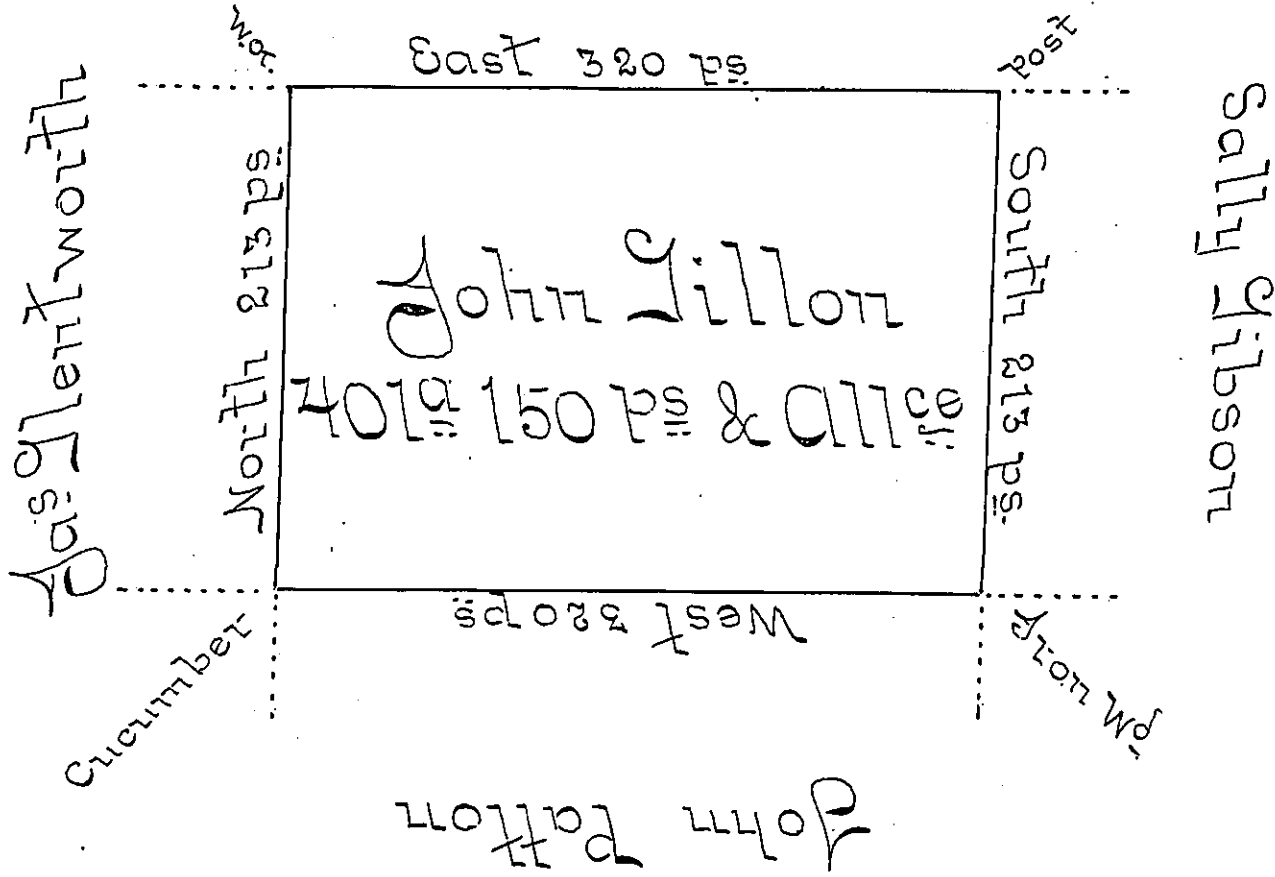 W.O.
East 320 ps
post
Jas Glentworth
North 213 ps
John Gillon
401a 150 ps & Allce
South 213 ps
Sally Gibson
West 320 ps
Cucumber
Iron Wd
John Patton